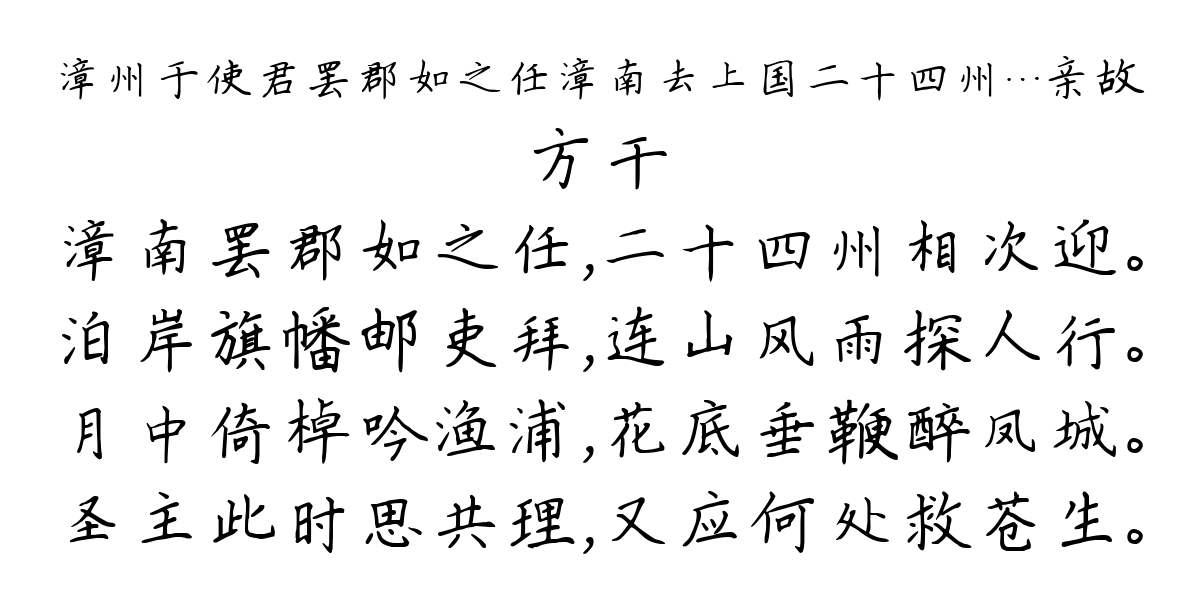 漳州于使君罢郡如之任漳南去上国二十四州…亲故
方干
漳南罢郡如之任,二十四州相次迎。
泊岸旗幡邮吏拜,连山风雨探人行。
月中倚棹吟渔浦,花底垂鞭醉凤城。
圣主此时思共理,又应何处救苍生。